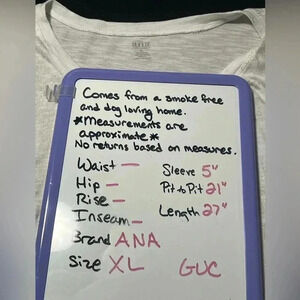 Comes from a smoke free
and dog loving home.
*Measurements are
approximate*
No returns based on measures.
Waist —
Hip —
Rise —
Inseam —
Brand ANA
Size XL
Sleeve 5"
Pit to Pit 21"
Length 27"
GUC